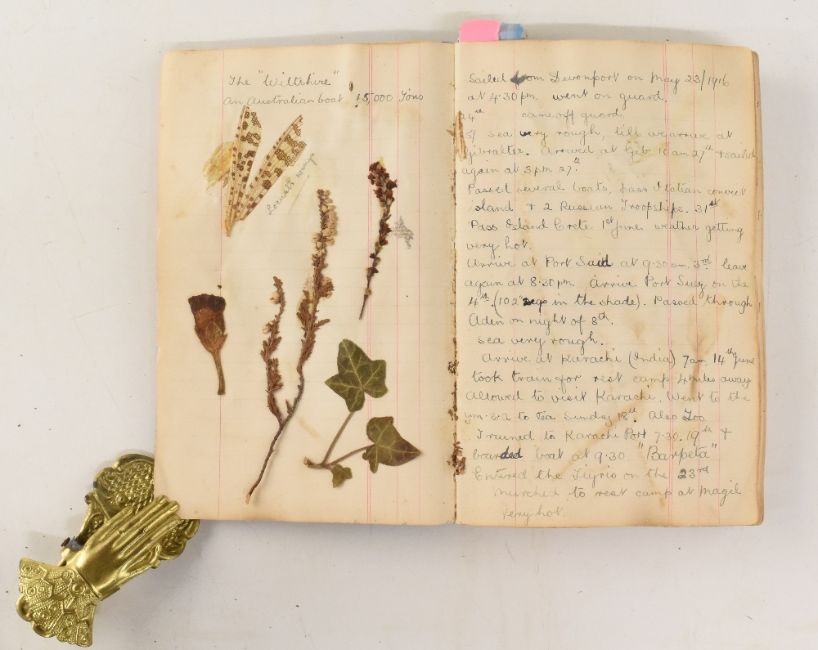 The "Wiltshire"
An Australian boat 15,000 Tons
Locust's wings
Sailed from Devonport on May 23/1916
at 4.30 pm went on guard.
24th came off guard
sea very rough, till we arrive at
Gibralter. Arrived at Gib 10 am 27th & sailed
again at 3 pm 27th.
Passed several boats, pass Italian convict
island & 2 Russian Troopships. 31st
Pass Island Crete 1st June. weather getting
very hot.
Arrive at Port Said at 9.30 am 3rd. leave
again at 8.30 pm. Arrive Port Suez on the
4th. (102 degs in the shade). Passed through
Aden on night of 8th.
Sea very rough.
Arrive at Karachi (India) 7 am 14th June
took train for rest camp 4 miles away
Allowed to visit Karachi. Went to the
Y.M.C.A to Tea Sunday 18th. Also Zoo
Trained to Karachi Port 7.30. 19th &
boarded boat at 9.30 "Barpeta"
Entered the Tigris on the 23rd
marched to rest camp at Magil
Very hot.